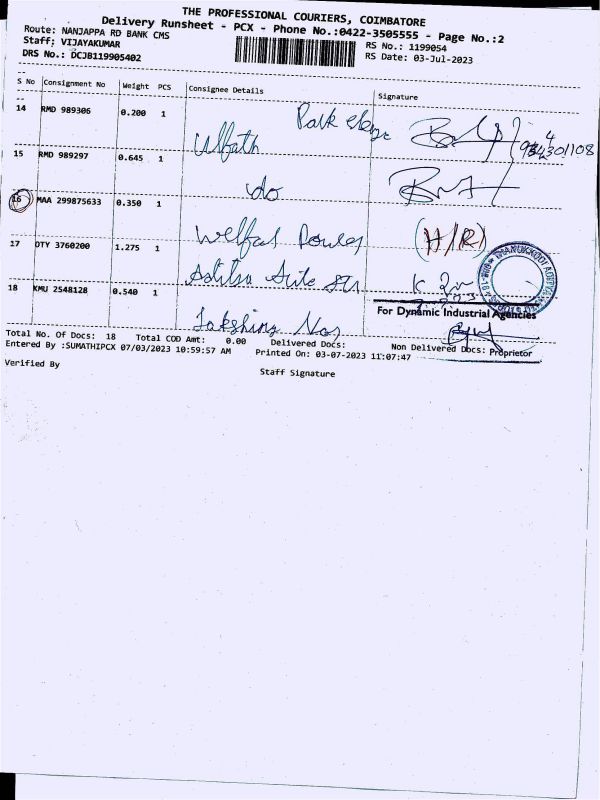 THE PROFESSIONAL COURIERS, COIMBATORE
Delivery Runsheet - PCX - Phone No.:0422-3505555 - Page No.:2
Route: NANJAPPA RD BANK CMS
RS No.: 1199054
Staff: VIJAYAKUMAR
RS Date: 03-Jul-2023
DRS No.: DCJB119905402
S No Consignment No Weight PCS Consignee Details Signature
14 RMD 989306 0.200 1 Park
Ulfath
15 RMD 989297 0.645 1 do
16 MAA 299875633 0.350 1 (H/R)
17 DTY 3760200 1.275 1
18 KMU 2548128 0.540 1
For Dynamic Industrial Agencies
Total No. Of Docs: 18 Total COD Amt: 0.00 Delivered Docs: Non Delivered Docs: Proprietor
Entered By :SUMATHIPCX 07/03/2023 10:59:57 AM Printed On: 03-07-2023 11:07:47
Verified By
Staff Signature